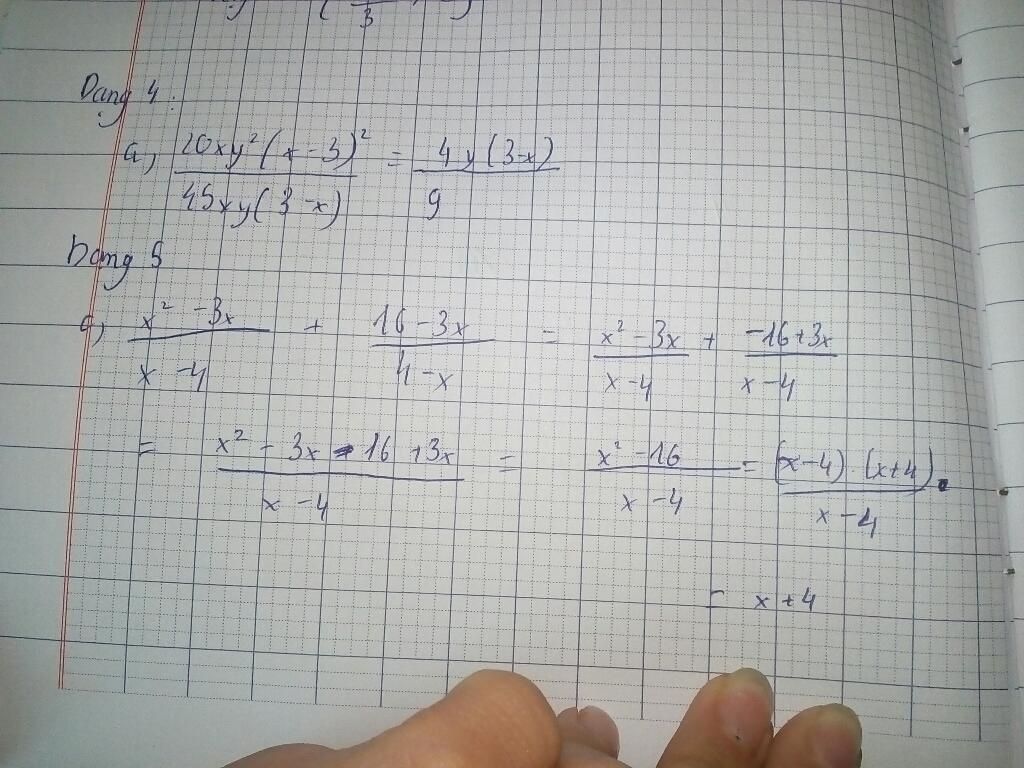 Dang 4:
a, 20xy²(x-3)² / 45xy(3-x) = 4y(3-x) / 9
Dang 5
c, x² - 3x / x - 4 + 16 - 3x / 4 - x = x² - 3x / x - 4 + -16 + 3x / x - 4
= x² - 3x - 16 + 3x / x - 4 = x² - 16 / x - 4 = (x-4) (x+4) / x - 4
= x + 4